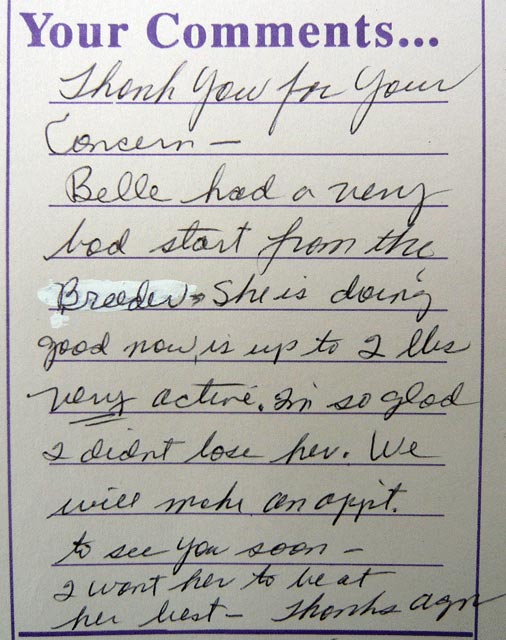 Your Comments...
Thank You for Your
Concern —
Belle had a very
bad start from the
Breeder, She is doing
good now, is up to 2 lbs
very active. Im so glad
I didnt lose her. We
will make an appt.
to see you soon —
I want her to be at
her best — Thanks agn